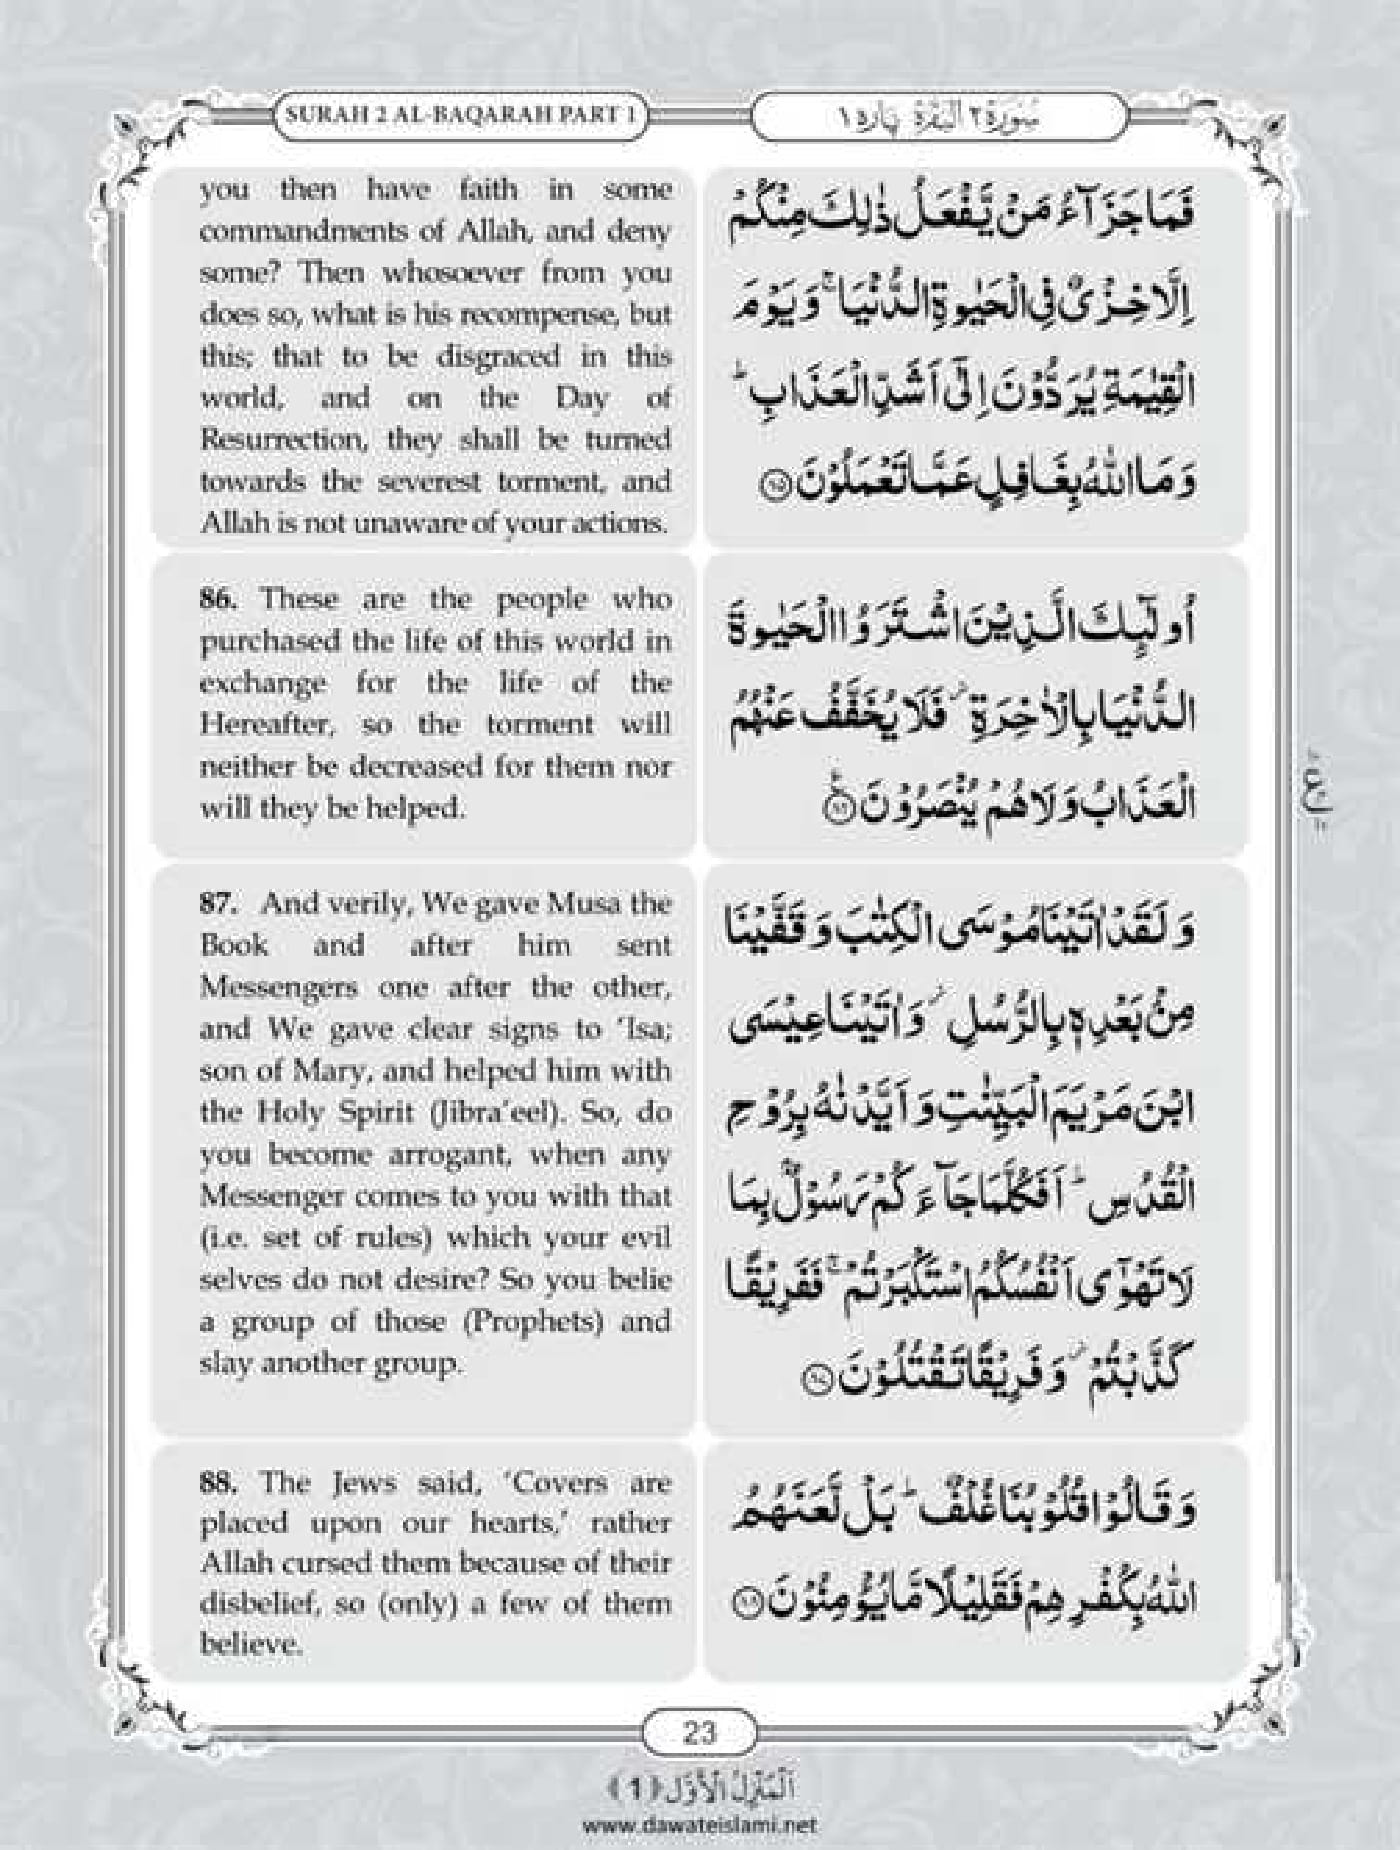 SURAH 2 AL-BAQARAH PART 1
سُوْرَةُ ٢ الْبَقَرَة پاره ١
you then have faith in some
commandments of Allah, and deny
some? Then whosoever from you
does so, what is his recompense, but
this; that to be disgraced in this
world, and on the Day of
Resurrection, they shall be turned
towards the severest torment, and
Allah is not unaware of your actions.
فَمَا جَزَآءُ مَنْ يَّفْعَلُ ذٰلِكَ مِنْكُمْ
اِلَّا خِزْیٌ فِی الْحَیٰوةِ الدُّنْیَا ۚ وَ یَوْمَ
الْقِیٰمَةِ یُرَدُّوْنَ اِلٰۤی اَشَدِّ الْعَذَابِ ؕ
وَ مَا اللّٰهُ بِغَافِلٍ عَمَّا تَعْمَلُوْنَ ﴿۸۵﴾
86. These are the people who
purchased the life of this world in
exchange for the life of the
Hereafter, so the torment will
neither be decreased for them nor
will they be helped.
اُولٰٓئِكَ الَّذِیْنَ اشْتَرَوُا الْحَیٰوةَ
الدُّنْیَا بِالْاٰخِرَةِ ؗ فَلَا یُخَفَّفُ عَنْهُمُ
الْعَذَابُ وَ لَا هُمْ یُنْصَرُوْنَ ﴿۸۶﴾
87. And verily, We gave Musa the
Book and after him sent
Messengers one after the other,
and We gave clear signs to ‘Isa;
son of Mary, and helped him with
the Holy Spirit (Jibra’eel). So, do
you become arrogant, when any
Messenger comes to you with that
(i.e. set of rules) which your evil
selves do not desire? So you belie
a group of those (Prophets) and
slay another group.
وَ لَقَدْ اٰتَیْنَا مُوْسَی الْكِتٰبَ وَ قَفَّیْنَا
مِنْۢ بَعْدِهٖ بِالرُّسُلِ ؗ وَ اٰتَیْنَا عِیْسَی
ابْنَ مَرْیَمَ الْبَیِّنٰتِ وَ اَیَّدْنٰهُ بِرُوْحِ
الْقُدُسِ ؕ اَفَكُلَّمَا جَآءَكُمْ رَسُوْلٌۢ بِمَا
لَا تَهْوٰۤی اَنْفُسُكُمُ اسْتَكْبَرْتُمْ ۚ فَفَرِیْقًا
كَذَّبْتُمْ ؗ وَ فَرِیْقًا تَقْتُلُوْنَ ﴿۸۷﴾
88. The Jews said, ‘Covers are
placed upon our hearts,’ rather
Allah cursed them because of their
disbelief, so (only) a few of them
believe.
وَ قَالُوْا قُلُوْبُنَا غُلْفٌ ؕ بَلْ لَّعَنَهُمُ
اللّٰهُ بِكُفْرِهِمْ فَقَلِیْلًا مَّا یُؤْمِنُوْنَ ﴿۸۸﴾
23
اَلْمَنْزِلُ الْاَوَّل ﴿1﴾
www.dawateislami.net